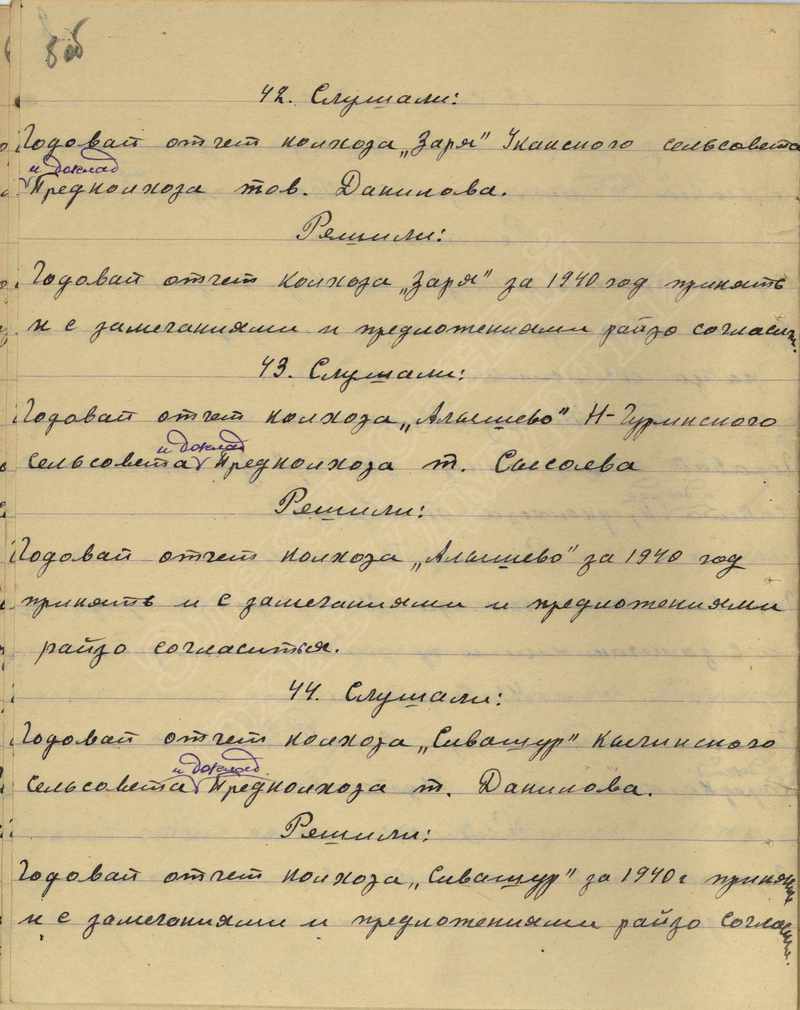 8 об
42. Слушали:
Годовай отчет колхоза „Заря" Уканского сельсовета
и доклад
Предколхоза тов. Данилова.
Решили:
Годовай отчет колхоза „Заря" за 1940 год принять
и с замечаниями и предложениями райзо согласит.
43. Слушали:
Годовай отчет колхоза „Алышево" Н-Чуринского
и доклад
сельсовета Предколхоза т. Сысоева
Решили:
Годовай отчет колхоза „Алышево" за 1940 год
принять и с замечаниями и предложениями
райзо согласиться.
44. Слушали:
Годовай отчет колхоза „Сивашур" Кычинского
и доклад
сельсовета Предколхоза т. Данилова.
Решили:
Годовай отчет колхоза „Сивашур" за 1940 г принять
и с замечаниями и предложениями райзо согласиться.